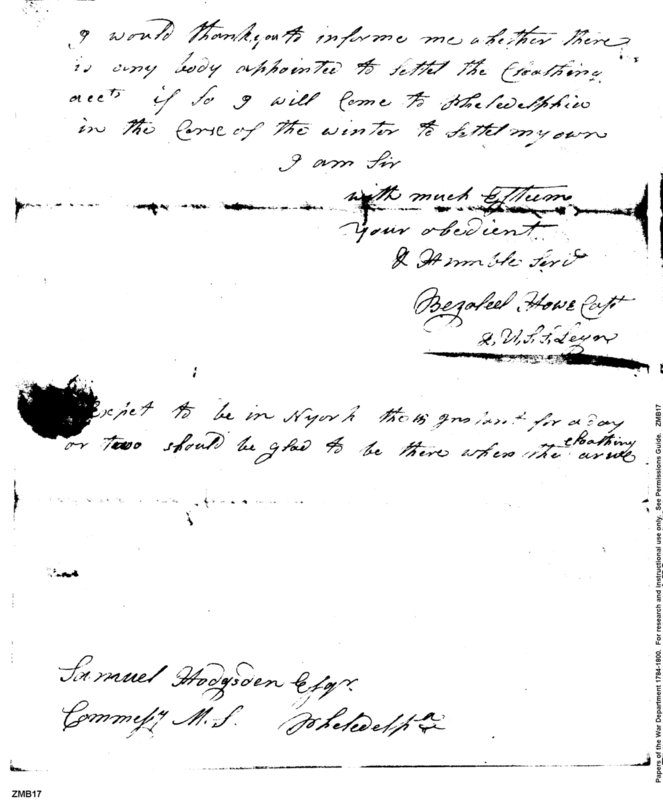 I would thank you to informe me whether there
is any body appointed to settel the Cloathing
accts if so I will Come to Pheledelphia
in the Corse of the winter to settel my own
I am Sir
with much Esteem
your obedient
& Humble Servt
Bezaleel Howe Capt
2. U.S.S. Legn
Expet to be in N york the 15 Instant for a day
or two should be glad to be there when the Cloathing arive
Samuel Hodgsden Esqr.
Commessy M. S. Pheledelpa
Papers of the War Department 1784-1800. For research and instructional use only. See Permissions Guide. ZMB17
ZMB17